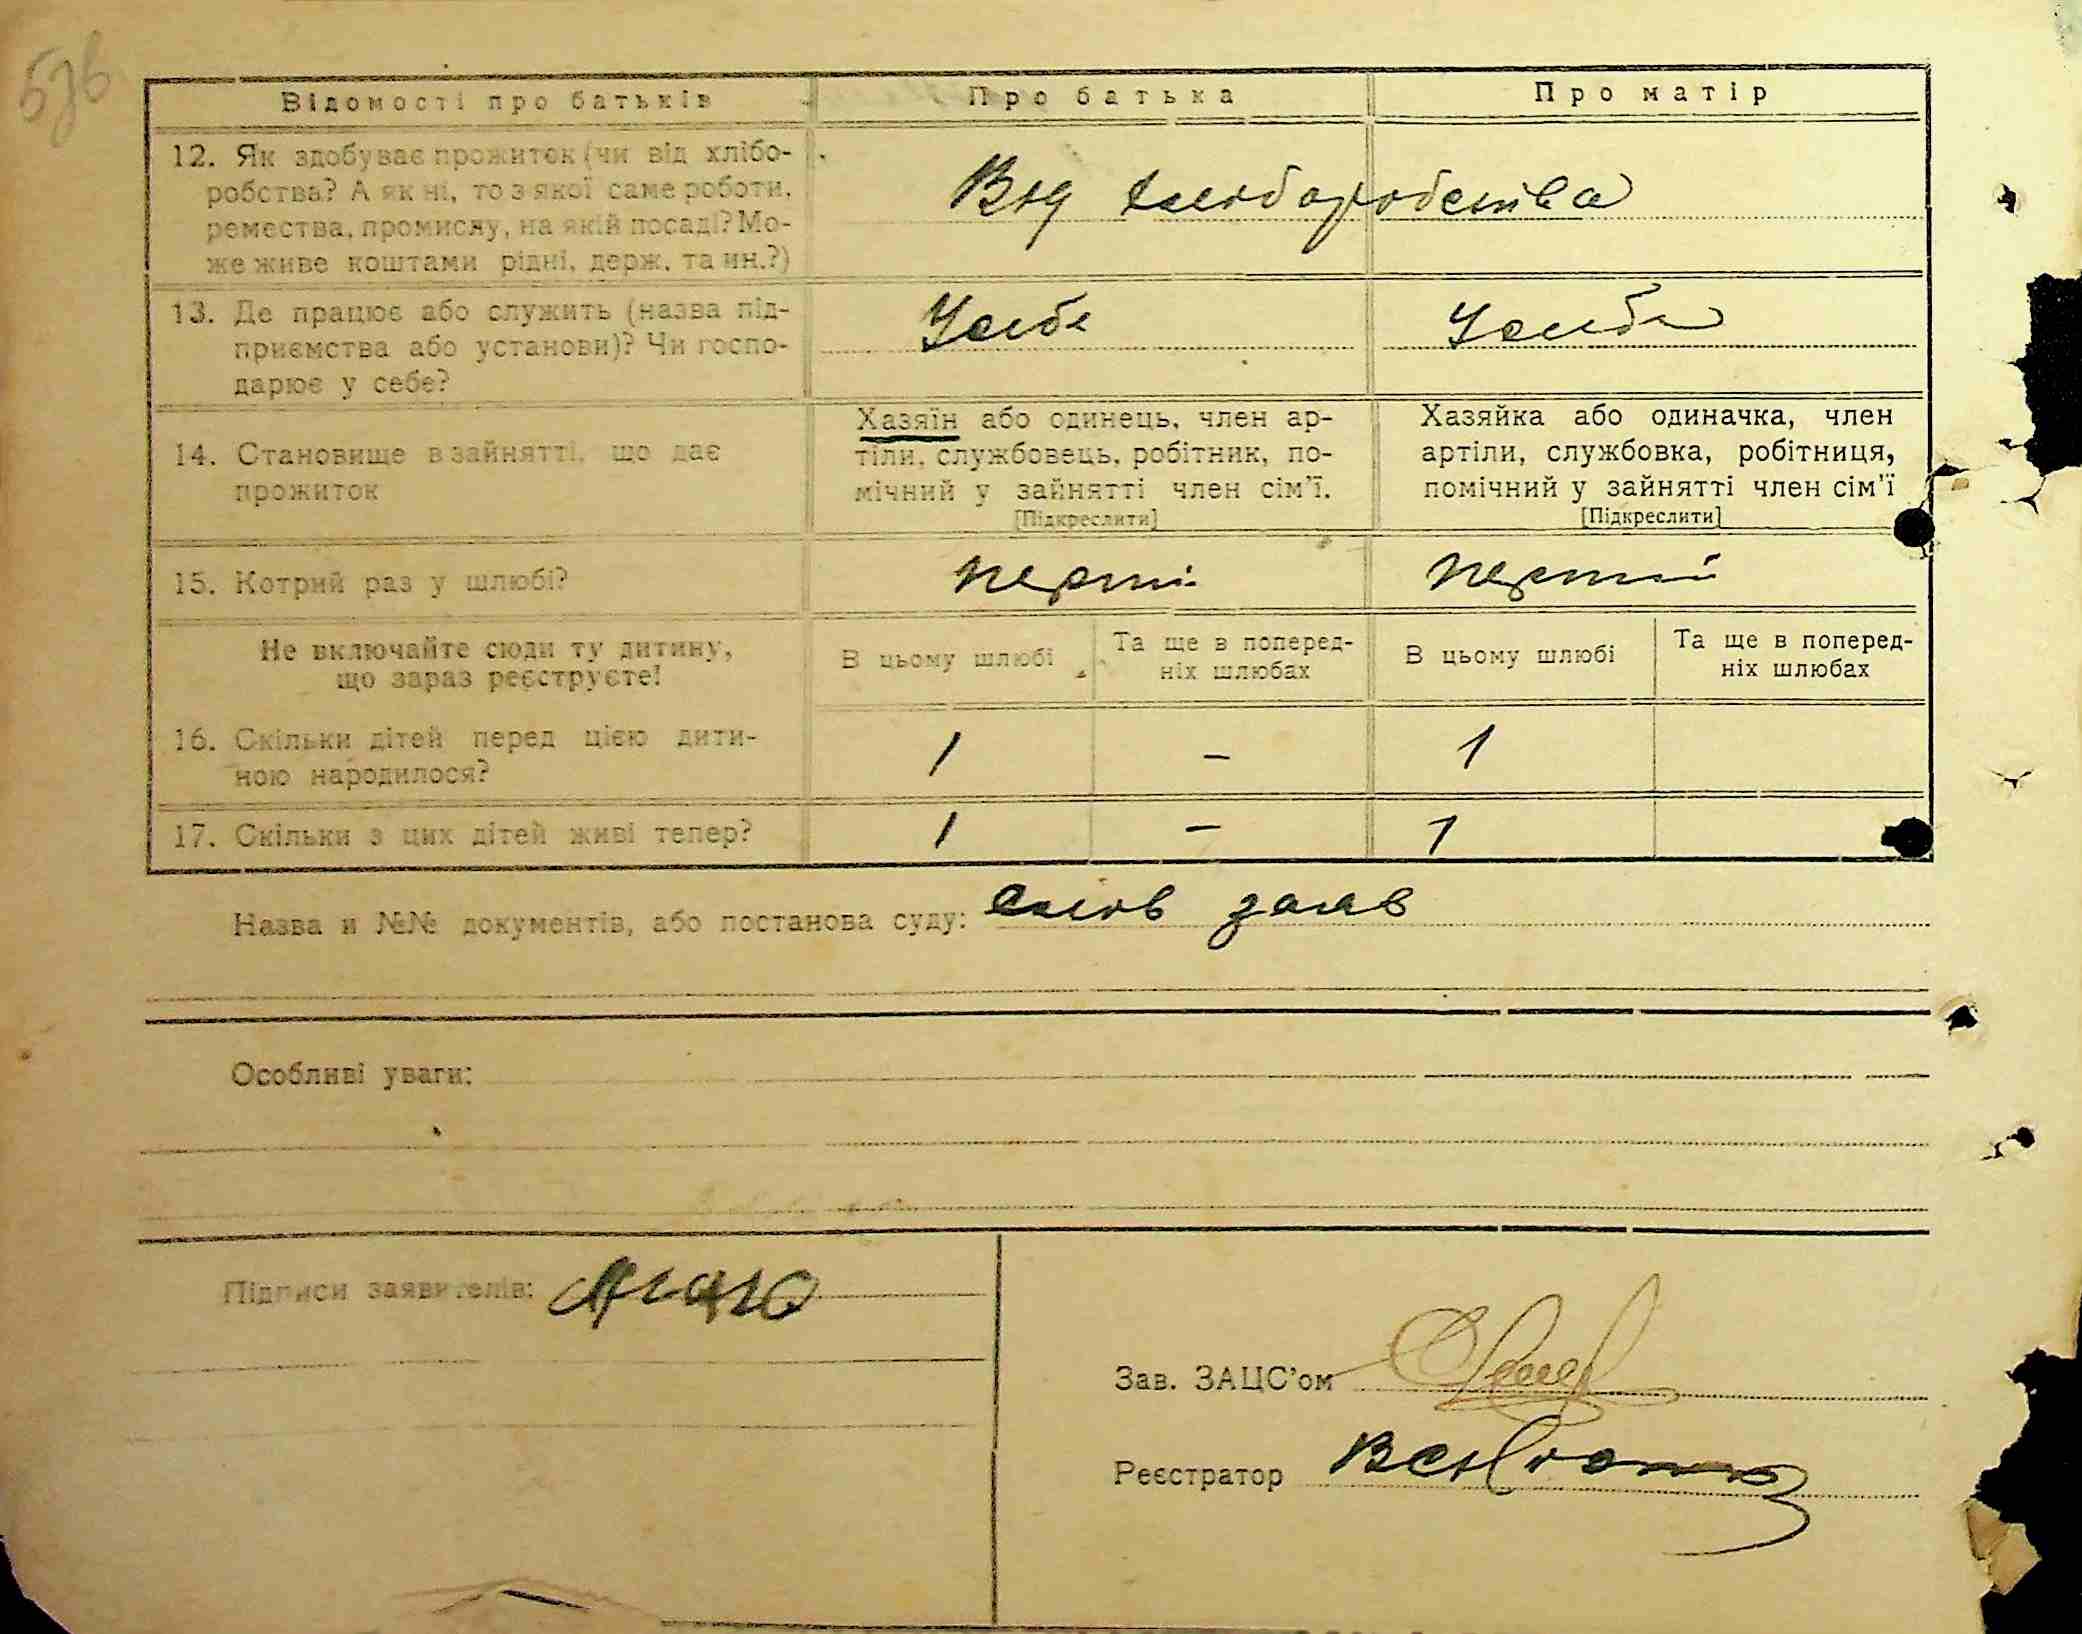 Відомості про батьків
Про батька
Про матір
12. Як здобуває прожиток (чи від хлібо-
робства? А як ні, то з якої саме роботи,
ремества, промислу, на якій посаді? Мо-
же живе коштами рідні, держ. та ин.?)
Від хліборобства
13. Де працює або служить (назва під-
приємства або установи)? Чи госпо-
дарює у себе?
Усебе
Усебе
14. Становище в зайнятті, що дає
прожиток
Хазяїн або одинець, член ар-
тіли, службовець, робітник, по-
мічний у зайнятті член сім'ї.
[Підкреслити]
Хазяйка або одиначка, член
артіли, службовка, робітниця,
помічний у зайнятті член сім'ї
[Підкреслити]
15. Котрий раз у шлюбі?
перши
перший
Не включайте сюди ту дитину,
що зараз реєструєте!
В цьому шлюбі
Та ще в поперед-
ніх шлюбах
В цьому шлюбі
Та ще в поперед-
ніх шлюбах
16. Скільки дітей перед цією дити-
ною народилося?
1 – 1
17. Скільки з цих дітей живі тепер?
1 – 1
Назва и №№ документів, або постанова суду:
Особливі уваги:
Підписи заявителів:
Зав. ЗАЦС'ом
Реєстратор